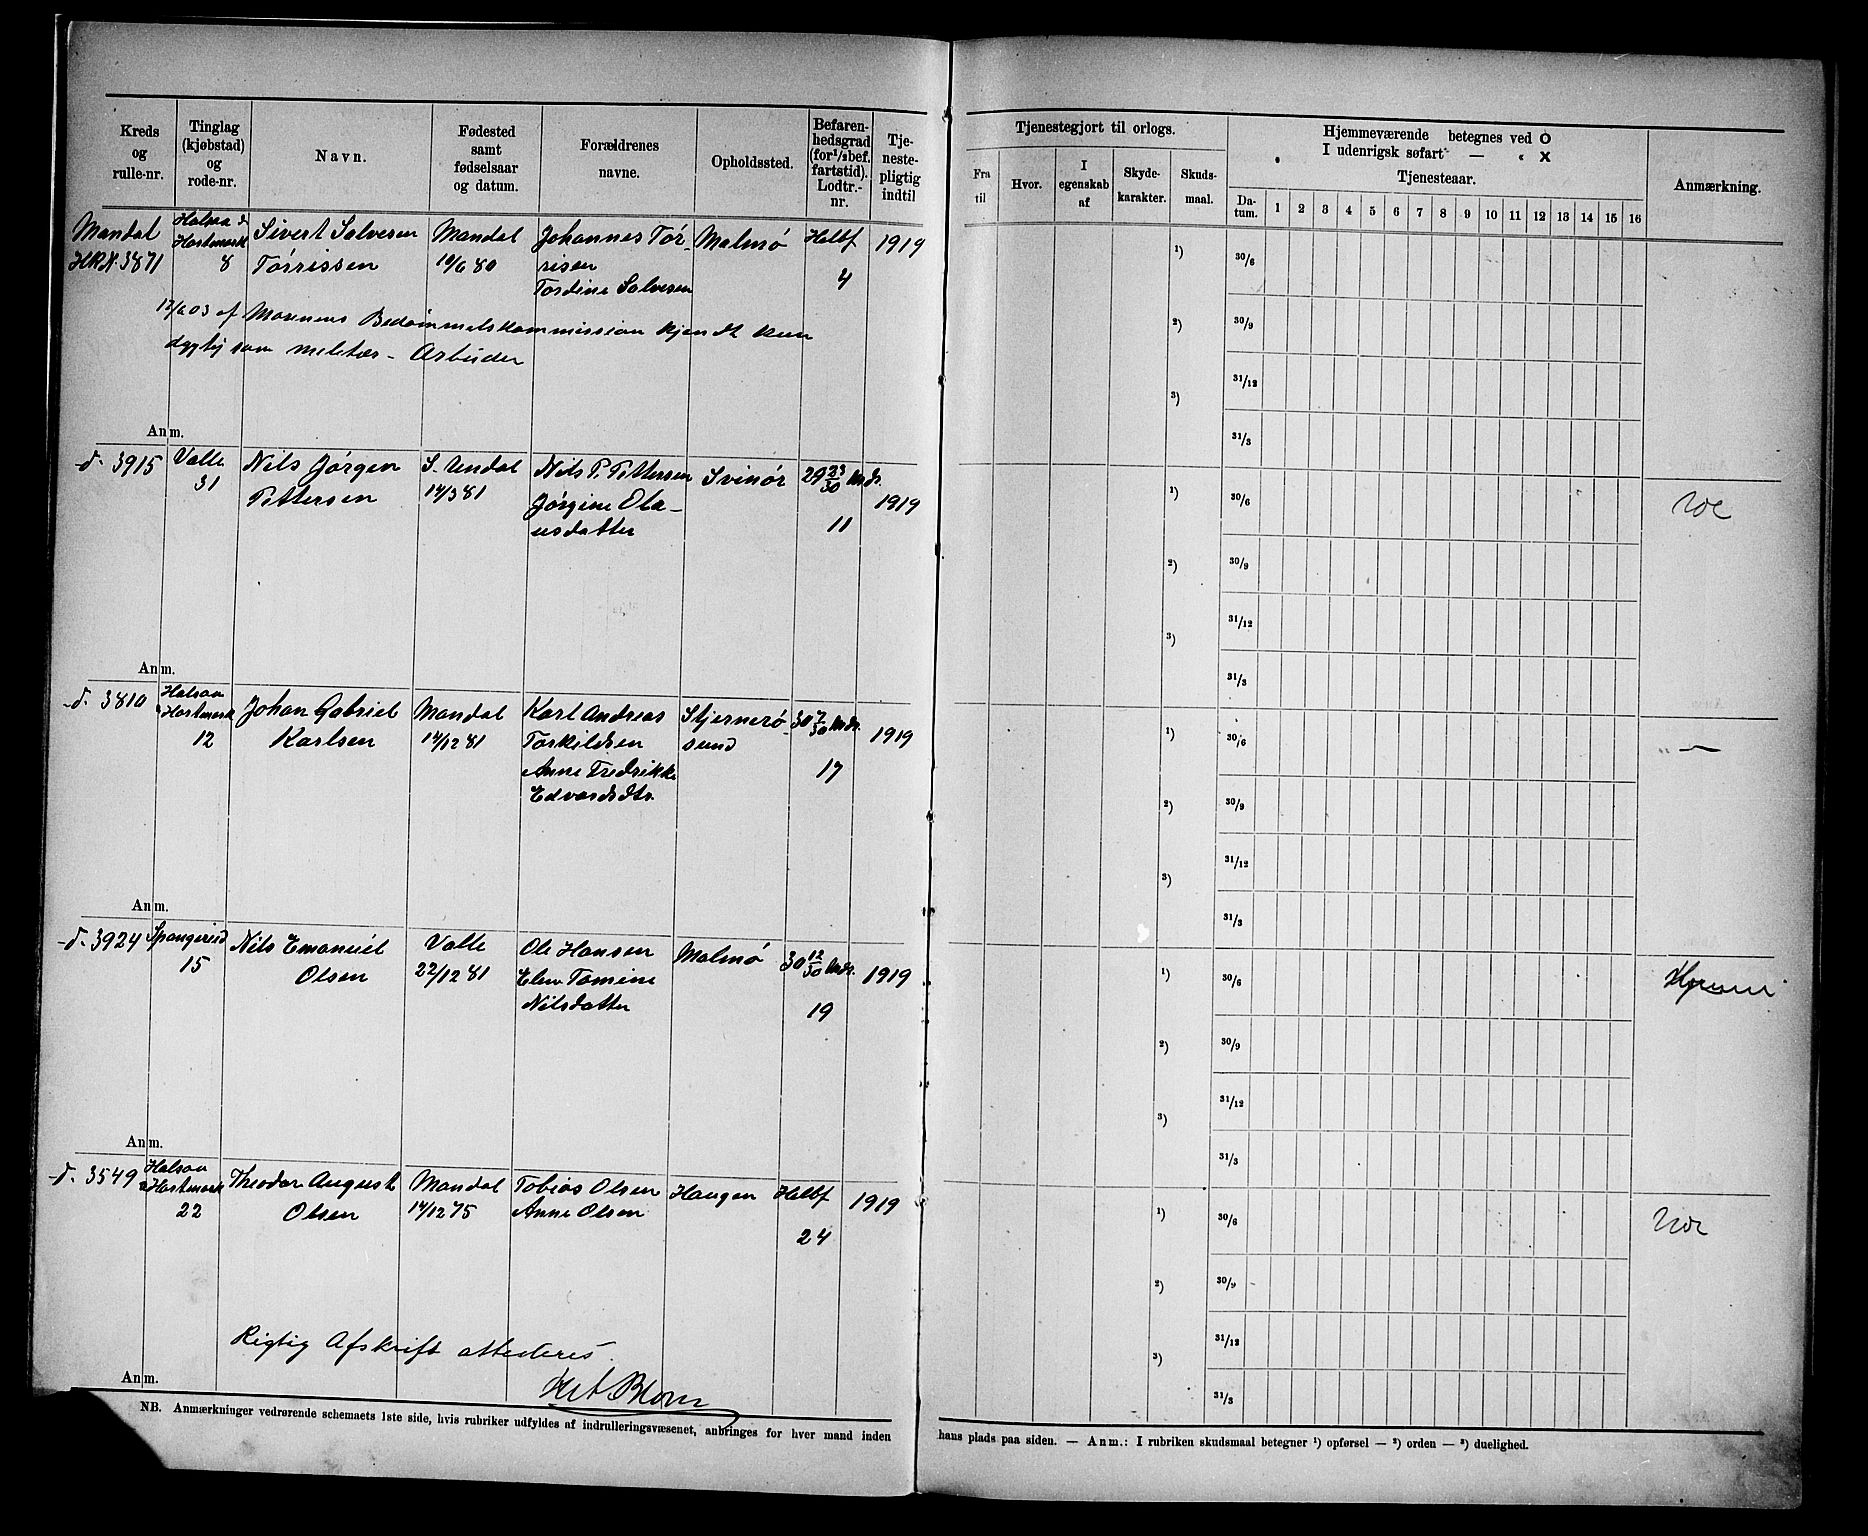 Kreds
og
rulle-nr.
Tinglag
(kjøbstad)
og
rode-nr.
Navn.
Fødested
samt
fødselsaar
og datum.
Forældrenes
navne.
Opholdssted.
Befaren-
hedsgrad
(for 1/2 bef.
fartstid).
Lodtr.-
nr.
Tje-
neste-
pligtig
indtil
Mandal
HRN. 3871
Halsaa &
Hartmark
8
Sivert Salvesen
Tørrissen
Mandal
10/6 80
Johannes Tør-
risen
Tordine Salvesen
Malmø
Halbf
4
1919
12/6 03 af Marenens Bedømmelskommission kjendt kun
dygtig som militær - Arbeider
Anm.
-d- 3915
Valle
31
Nils Jørgen
Pettersen
S. Undal
14/3 81
Nils P. Pettersen
Jørgine Ola-
usdatter
Svinør
29 23/30 Mdr.
11
1919
Anm.
-d- 3810
Halsaa
& Hartmark
12
Johan Gabriel
Karlsen
Mandal
14/12 81
Karl Andreas
Torkildsen
Anne Fredrikke
Edvardsdtr.
Stjernerø-
sund
30 7/30 Mdr.
17
1919
Anm.
-d- 3924
Spangereid
15
Nils Emanuel
Olsen
Valle
22/12 81
Ole Hansen
Elen Tomine
Nilsdatter
Malmø
30 12/30 Mdr.
19
1919
Anm.
-d- 3549
Halsaa
& Hartmark
22
Theodor August
Olsen
Mandal
14/12 75
Tobias Olsen
Anne Olsen
Haugen
Halbf
24
1919
Rigtig Afskrift attesteres.
Anm.
NB. Anmærkninger vedrørende schemaets 1ste side, hvis rubriker udfyldes af indrulleringsvæsenet, anbringes for hver mand inden
Tjenestegjort til orlogs.
Fra
til
Hvor.
I
egenskab
af
Skyde-
karakter.
Skuds-
maal.
Hjemmeværende betegnes ved O
I udenrigsk søfart — " X
Tjenesteaar.
Da-
tum.
1 2 3 4 5 6 7 8 9 10 11 12 13 14 15 16
Anmærkning.
1)
30/6
2)
30/9
31/12
3)
31/3
1)
30/6
2)
30/9
31/12
3)
31/3
1)
30/6
" —
2)
30/9
31/12
3)
31/3
1)
30/6
Hjemme
2)
30/9
31/12
3)
31/3
1)
30/6
2)
30/9
31/12
3)
31/3
hans plads paa siden. — Anm.: I rubriken skudsmaal betegner 1) opførsel — 2) orden — 3) duelighed.